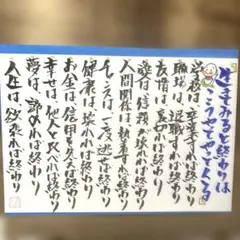 生きてみると終わりは
こうしてやってくる
学校は、卒業すれば終わり
職場は、退職すれば終わり
友情は、裏切れば終わり
愛は、信頼が壊れれば終わり
人間関係は、執着すれば終わり
チャンスは、一度逃せば終わり
健康は、壊れれば終わり
お金は、信用を失えば終わり
幸せは、他人と比べれば終わり
夢は、諦めれば終わり
人生は、欲張れば終わり